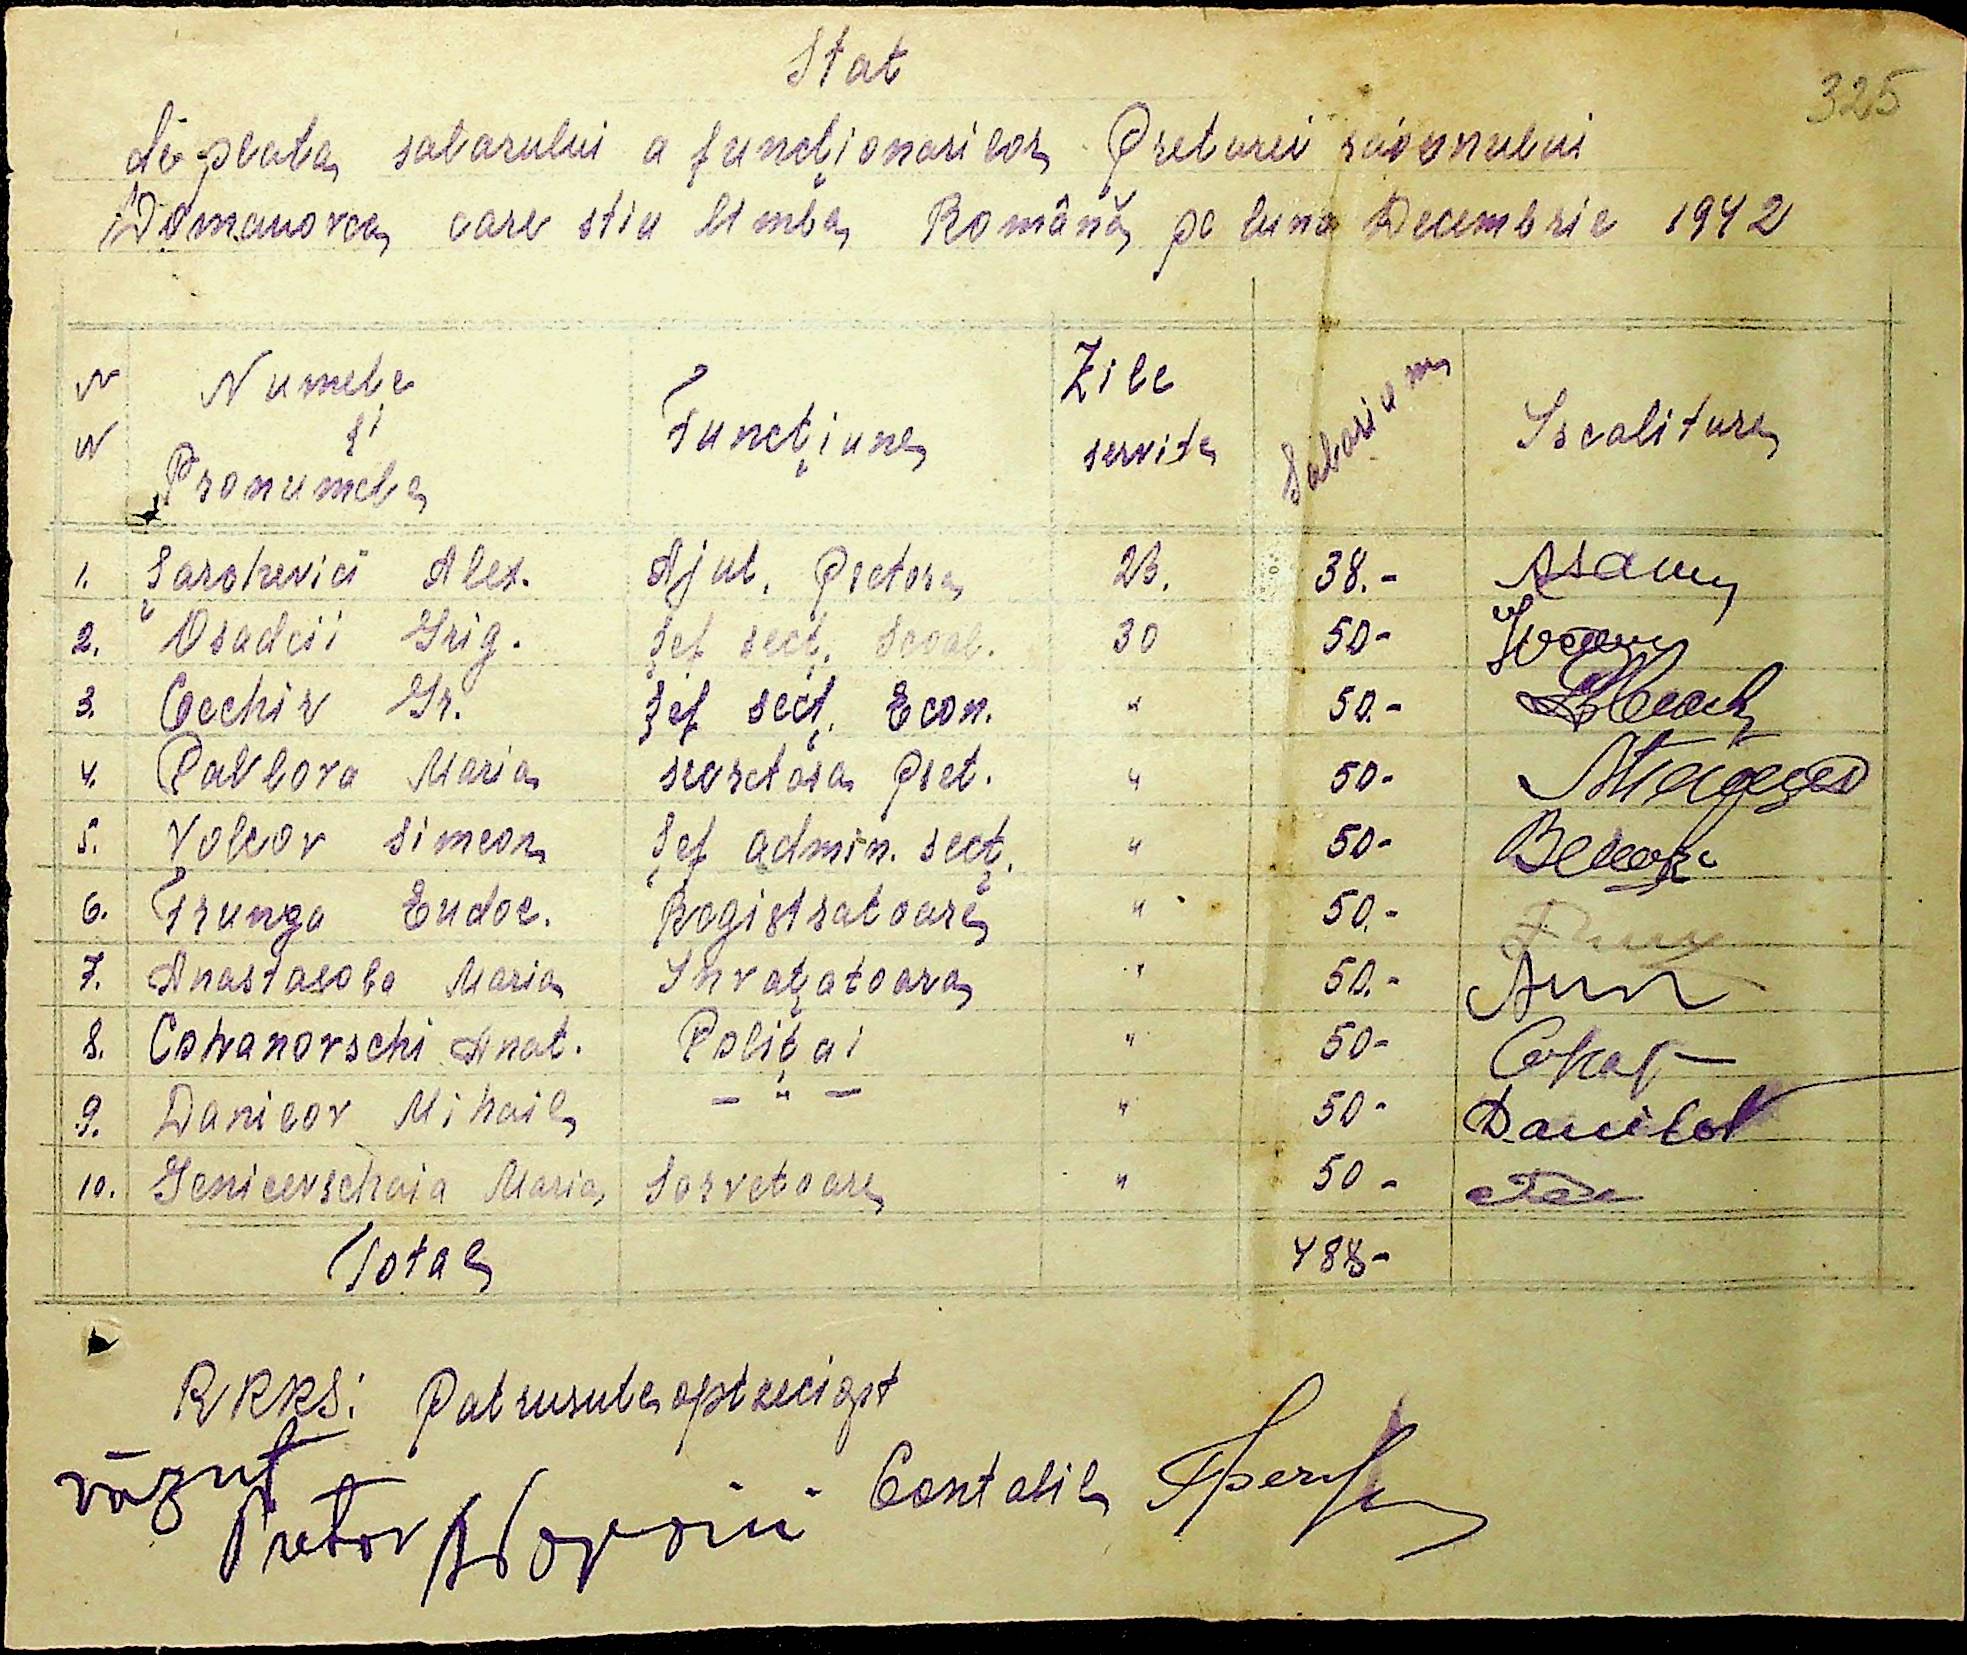 Stat
325
de plata salarului a funcționarilor Preturei raionului
Domanovca care stiu limba Română pe luna Decembrie 1942
N N Numele și Pronumele Funcțiune Zile servite Salariu m Iscalitura
1. Șarohevici Alex. Ajut. Pretora 23. 38.-
2. Osadcii Grig. Șef secț. Scoal. 30 50-
3. Cechir Gr. Șef secț. Econ. " 50.-
4. Pavlova Maria secretara Pret. " 50-
5. Volcov Simeon Șef admin. secț. " 50-
6. Frunza Eudoc. Registratoare " 50.-
7. Anastasova Maria Invațatoara " 50.-
8. Cohanovschi Anat. Polițai " 50-
9. Danilov Mihail - " - " 50- Danilov
10. Genicevschaia Maria Servetoare " 50-
Total 488-
RKKS: Patrusuteoptzeciopt
văzut
Contabil
Pretor